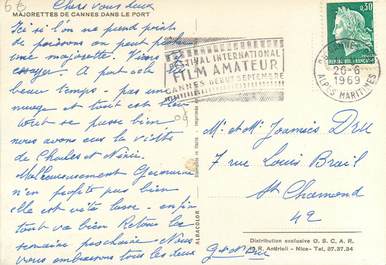 6€
Chers vous deux
MAJORETTES DE CANNES DANS LE PORT
Ici si l'on ne prend point
de poissons on peut pêcher
une majorette. Vins
essayer. A part cela
beau temps - pas une
nuage et tout est
tout se passe bien
nous avons eu la visite
de Charles et
Malheureusement Germaine
n'en profite pas bien
elle est vite lasse - enfin
tout va bien Retour la
semaine prochaine. Nous
vous embrassons tous les deux
FESTIVAL INTERNATIONAL
FILM AMATEUR
CANNES DEBUT SEPTEMBRE
0,30
REPUBLIQUE FRANCAISE
20-6
1969
ALPES MARITIMES
M. et Mme Joannès Dru
7 rue Louis Brail
St Chamond
42
ALBACOLOR
Distribution exclusive O. S. C. A. R.
R. Antérioli - Nice - Tel. 87.37.34